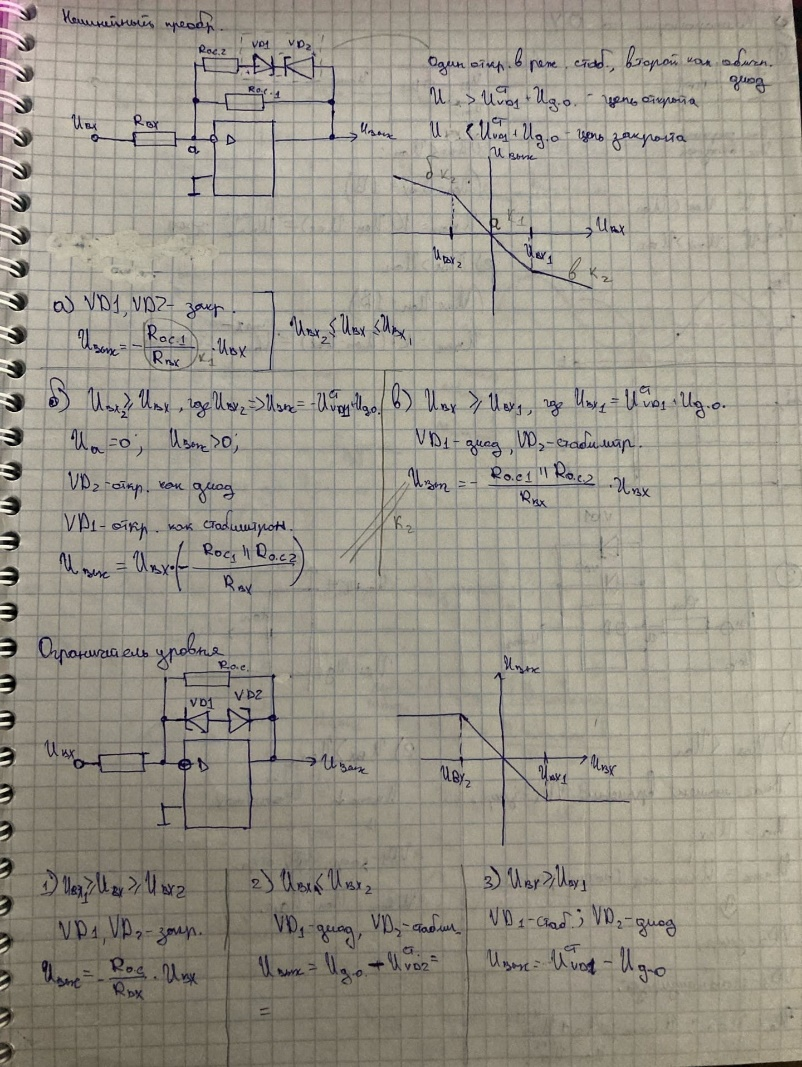 Нелинейный преобр.
Rо.с.2 VD1 VD2
Rо.с.1
Uвх Rвх a D Uвых
Один откр. в реж. стаб., второй как обычн. диод
U > UстVD1 + Uд.о. - цепь открыта
U < UстVD1 + Uд.о - цепь закрыта
Uвых
б K2
a K1 Uвх
Uвх2 Uвх1
в K2
а) VD1, VD2- закр.
Uвых = - Rос.1 / Rвх K1 · Uвх
Uвх2 ≤ Uвх ≤ Uвх1
б) Uвх2 ≥ Uвх, где Uвх2 => Uвых = -UстVD1 + Uд.о.
Ua = 0; Uвых > 0;
VD2 - откр. как диод
VD1 - откр. как стабилитрон.
Uвых = Uвх · (- Rос1 || Rо.с2 / Rвх)
в) Uвх ≥ Uвх1, где Uвх1 = UстVD1 + Uд.о.
VD1 - диод, VD2 - стабилитр.
Uвых = - Rо.с1 || Rо.с.2 / Rвх · Uвх
K2
Ограничитель уровня
Rо.с.
VD1 VD2
Uвх D Uвых
Uвых
Uвх2 Uвх1 Uвх
1) Uвх1 ≥ Uвх ≥ Uвх2
VD1, VD2 - закр.
Uвых = - Rос / Rвх · Uвх
2) Uвх ≤ Uвх2
VD1 - диод, VD2 - стабил.
Uвых = Uд.о + UстVD2 =
=
3) Uвх ≥ Uвх1
VD1 - стаб.; VD2 - диод
Uвых = UстVD1 - Uд.о